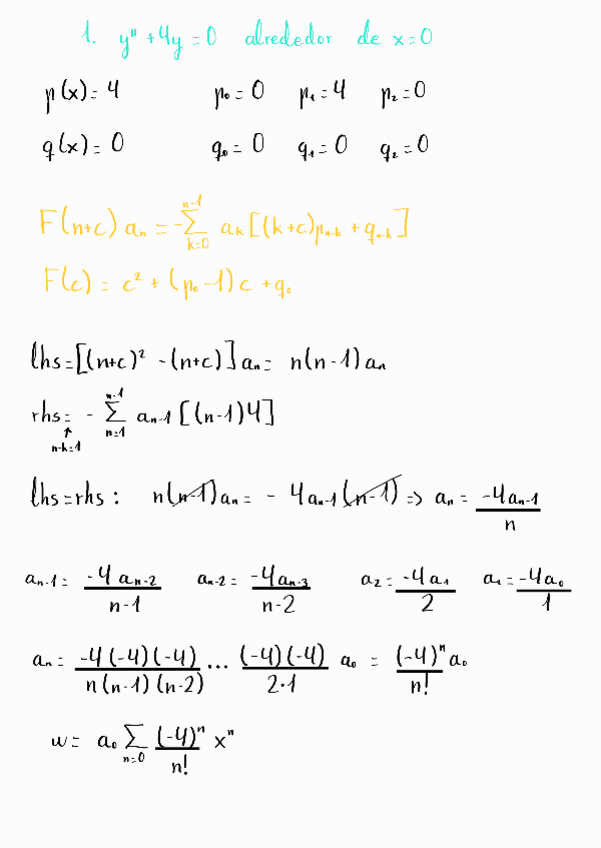 1. y" + 4y = 0 alrededor de x=0
p(x) = 4 p₀ = 0 p₁ = 4 p₂ = 0
q(x) = 0 q₀ = 0 q₁ = 0 q₂ = 0
F(n+c) aₙ = -∑_{k=0}^{n-1} a_k [(k+c)p_{n-k} + q_{n-k}]
F(c) = c² + (p₀-1)c + q₀
lhs = [(n+c)² - (n+c)] aₙ = n(n-1) aₙ
rhs = - ∑_{n=1}^{n-1} a_{n-1} [(n-1)4]
↑
n-k=1
lhs = rhs : n(n-1)aₙ = - 4a_{n-1}(n-1) => aₙ = -4a_{n-1} / n
a_{n-1} = -4a_{n-2} / n-1 a_{n-2} = -4a_{n-3} / n-2 a₂ = -4a₁ / 2 a₁ = -4a₀ / 1
aₙ = -4(-4)(-4) / n(n-1)(n-2) ... (-4)(-4) / 2·1 a₀ = (-4)ⁿ a₀ / n!
w = a₀ ∑_{n=0} (-4)ⁿ / n! xⁿ